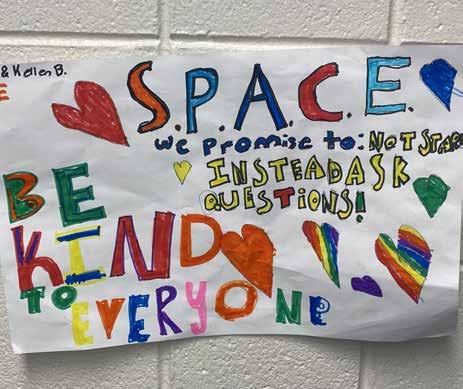 & Kellen B.
E
S.P.A.C.E.
We Promise to: NOT STARE
INSTEAD ASK
QUESTIONS!
BE
KIND
TO
EVERYONE